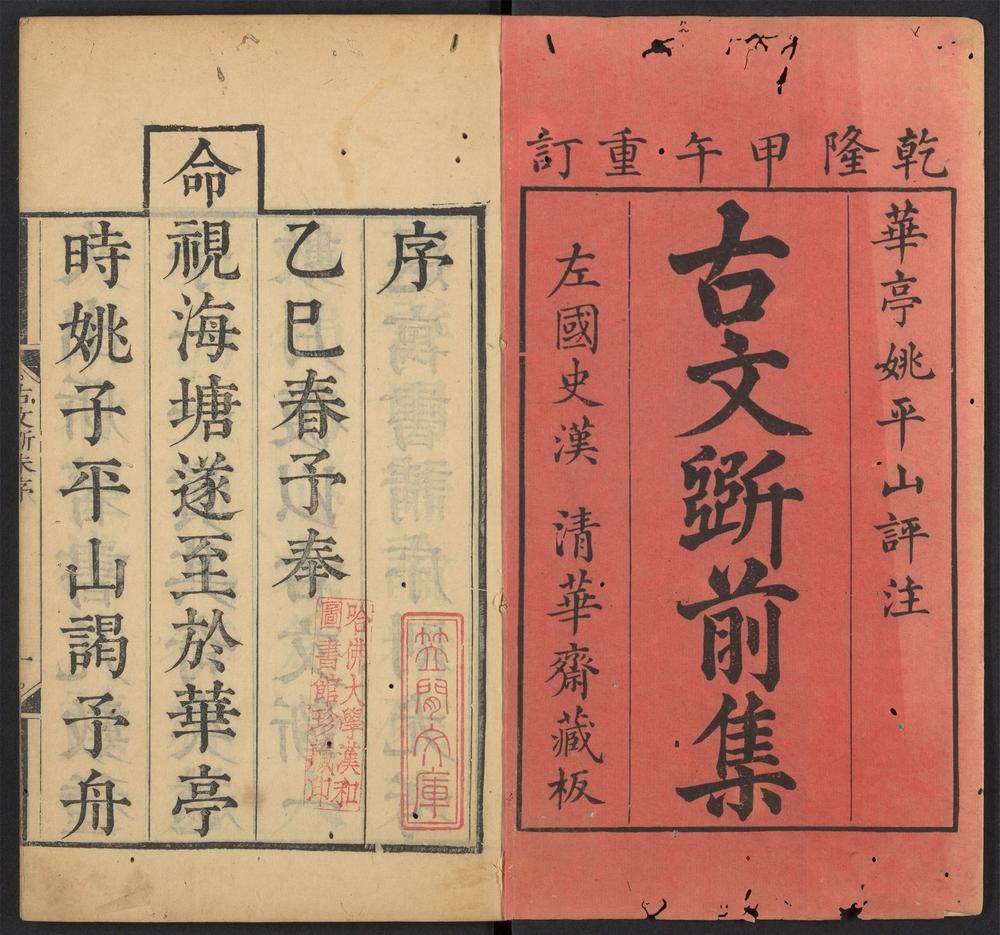 乾隆甲午重訂
華亭姚平山評注
古文斵前集
左國史漢 清華齋藏板
序
乙巳春予奉
命視海塘遂至於華亭
時姚子平山謁予舟
哈佛大學漢和
圖書館珍藏印